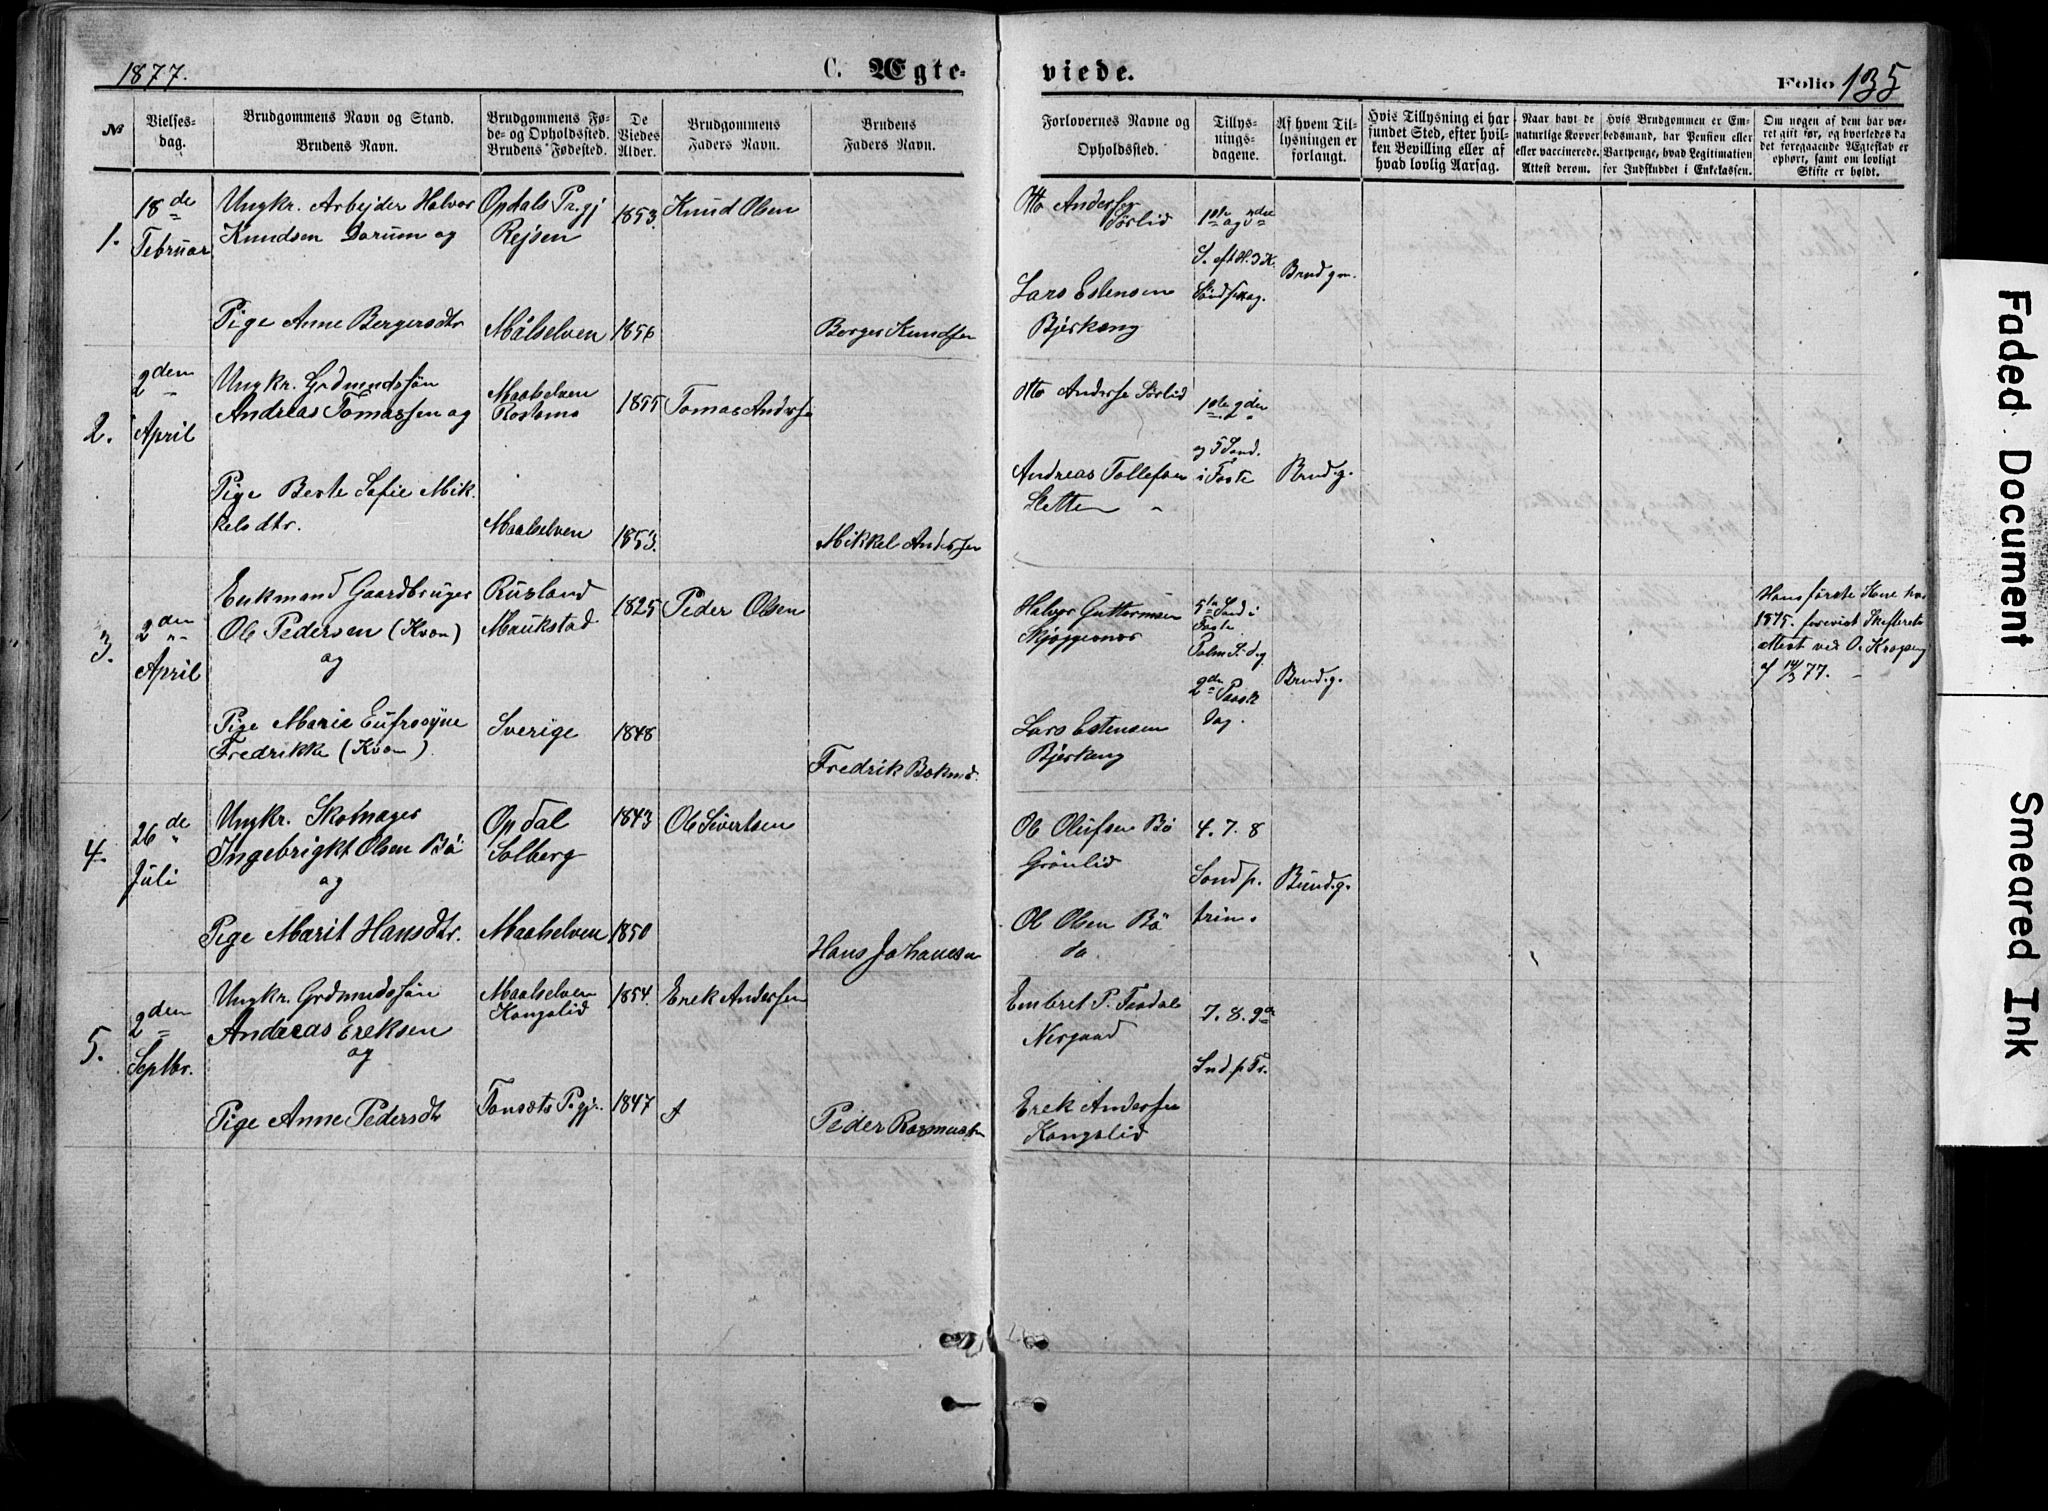 1877.
C. Ægte-
viede.
Folio 135
№
Vielses-
dag.
Brudgommens Navn og Stand.
Brudens Navn.
Brudgommens Fø-
de- og Opholdssted.
Brudens Fødested.
De
Viedes
Alder.
Brudgommens
Faders Navn.
Brudens
Faders Navn.
Forlovernes Navne og
Opholdssted.
Tillys-
nings-
dagene.
Af hvem Til-
lysningen er
forlangt.
Hvis Tillysning ei har
fundet Sted, efter hvil-
ken Bevilling eller af
hvad lovlig Aarsag.
Naar havt de
naturlige Kopper
eller vaccinerede.
Attest derom.
Hvis Brudgommen er Em-
bedsmand, har Pension eller
Vartpenge, hvad Legitimation
for Indskuddet i Enkekassen.
Om nogen af dem har væ-
ret gift før, og hvorledes da
det foregaaende Ægteskab er
ophørt, samt om lovligt
Skifte er holdt.
1.
18de
Februar
Ungkr. Arbejder Halvor
Knudsen Dorum og
Opdals Prgj
Rejsen
1853.
Knud Olsen
Otto Andersen
Sørlid
1ste og 3die
S. eft H. 3 K.
Sønd f. Mag.
Brudgm.
Pige Anne Bergersdtr
Målselven
1856
Berger Knudsen
Lars Estensen
Bjerkeng
2.
2den
April
Ungkr. Grdmandssøn
Andreas Tomassen og
Maalselven
Rostamo
1855
Tomas Andersen
Otto Anderse Sørlid
1ste 2den
og 5 Sønd.
i Faste
Brud.g.
Pige Berte Sofie Mik
kelsdtr.
Maalselven
1853.
Mikkel Andersen
Andreas Tollefsen
Sletten
3.
2den
April
Enkmand Gaardbruger
Ole Pedersen (Kvæn)
og
Rusland
Maukstad
1825
Peder Olsen
Halvor Guttormsen
Skjæggesnes
5te Sønd i
Faste
Palm S. dg
2den Paask
dag.
Brud.g.
Hans første Kone
1875. forevist Skifterets
Attest ved O. Krogseng
af 14/3 77.
Pige Marie Eufrosyne
Fredrikke (Kvæn)
Sverige
1848
Fredrik
Lars Estensen
Bjerkeng
4.
26de
Juli
Ungkr. Skomager
Ingebrigkt Olsen Bö
og
Opdal
Solberg
1843
Ole Sivertsen
Ole Olufsen Bö
Grönlid
4. 7. 8
Sønd p.
trin.
Brud.g.
Pige Marit Hansdtr.
Maalselven
1850
Hans Johanesen
Ole Olsen Bö
do
5.
2den
Septbr.
Ungkr. Grdmandssøn
Andreas Eriksen
og
Maalselven
Kongslid
1854.
Erek Andersen
Embret P. Fosdal
Nergaard
7. 8. 9de
Snd. p. Tr.
Pige Anne Pedersdtr
Tønsets Prgj.
1847
Peder Rasmussen
Erek Andersen
Kongslid
Faded Document
Smeared Ink